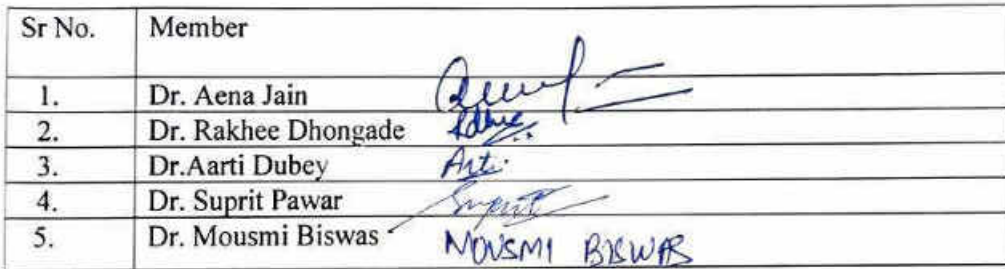 Sr No. Member
1. Dr. Aena Jain
2. Dr. Rakhee Dhongade
3. Dr.Aarti Dubey Arti
4. Dr. Suprit Pawar Suprit
5. Dr. Mousmi Biswas MOUSMI BISWAS